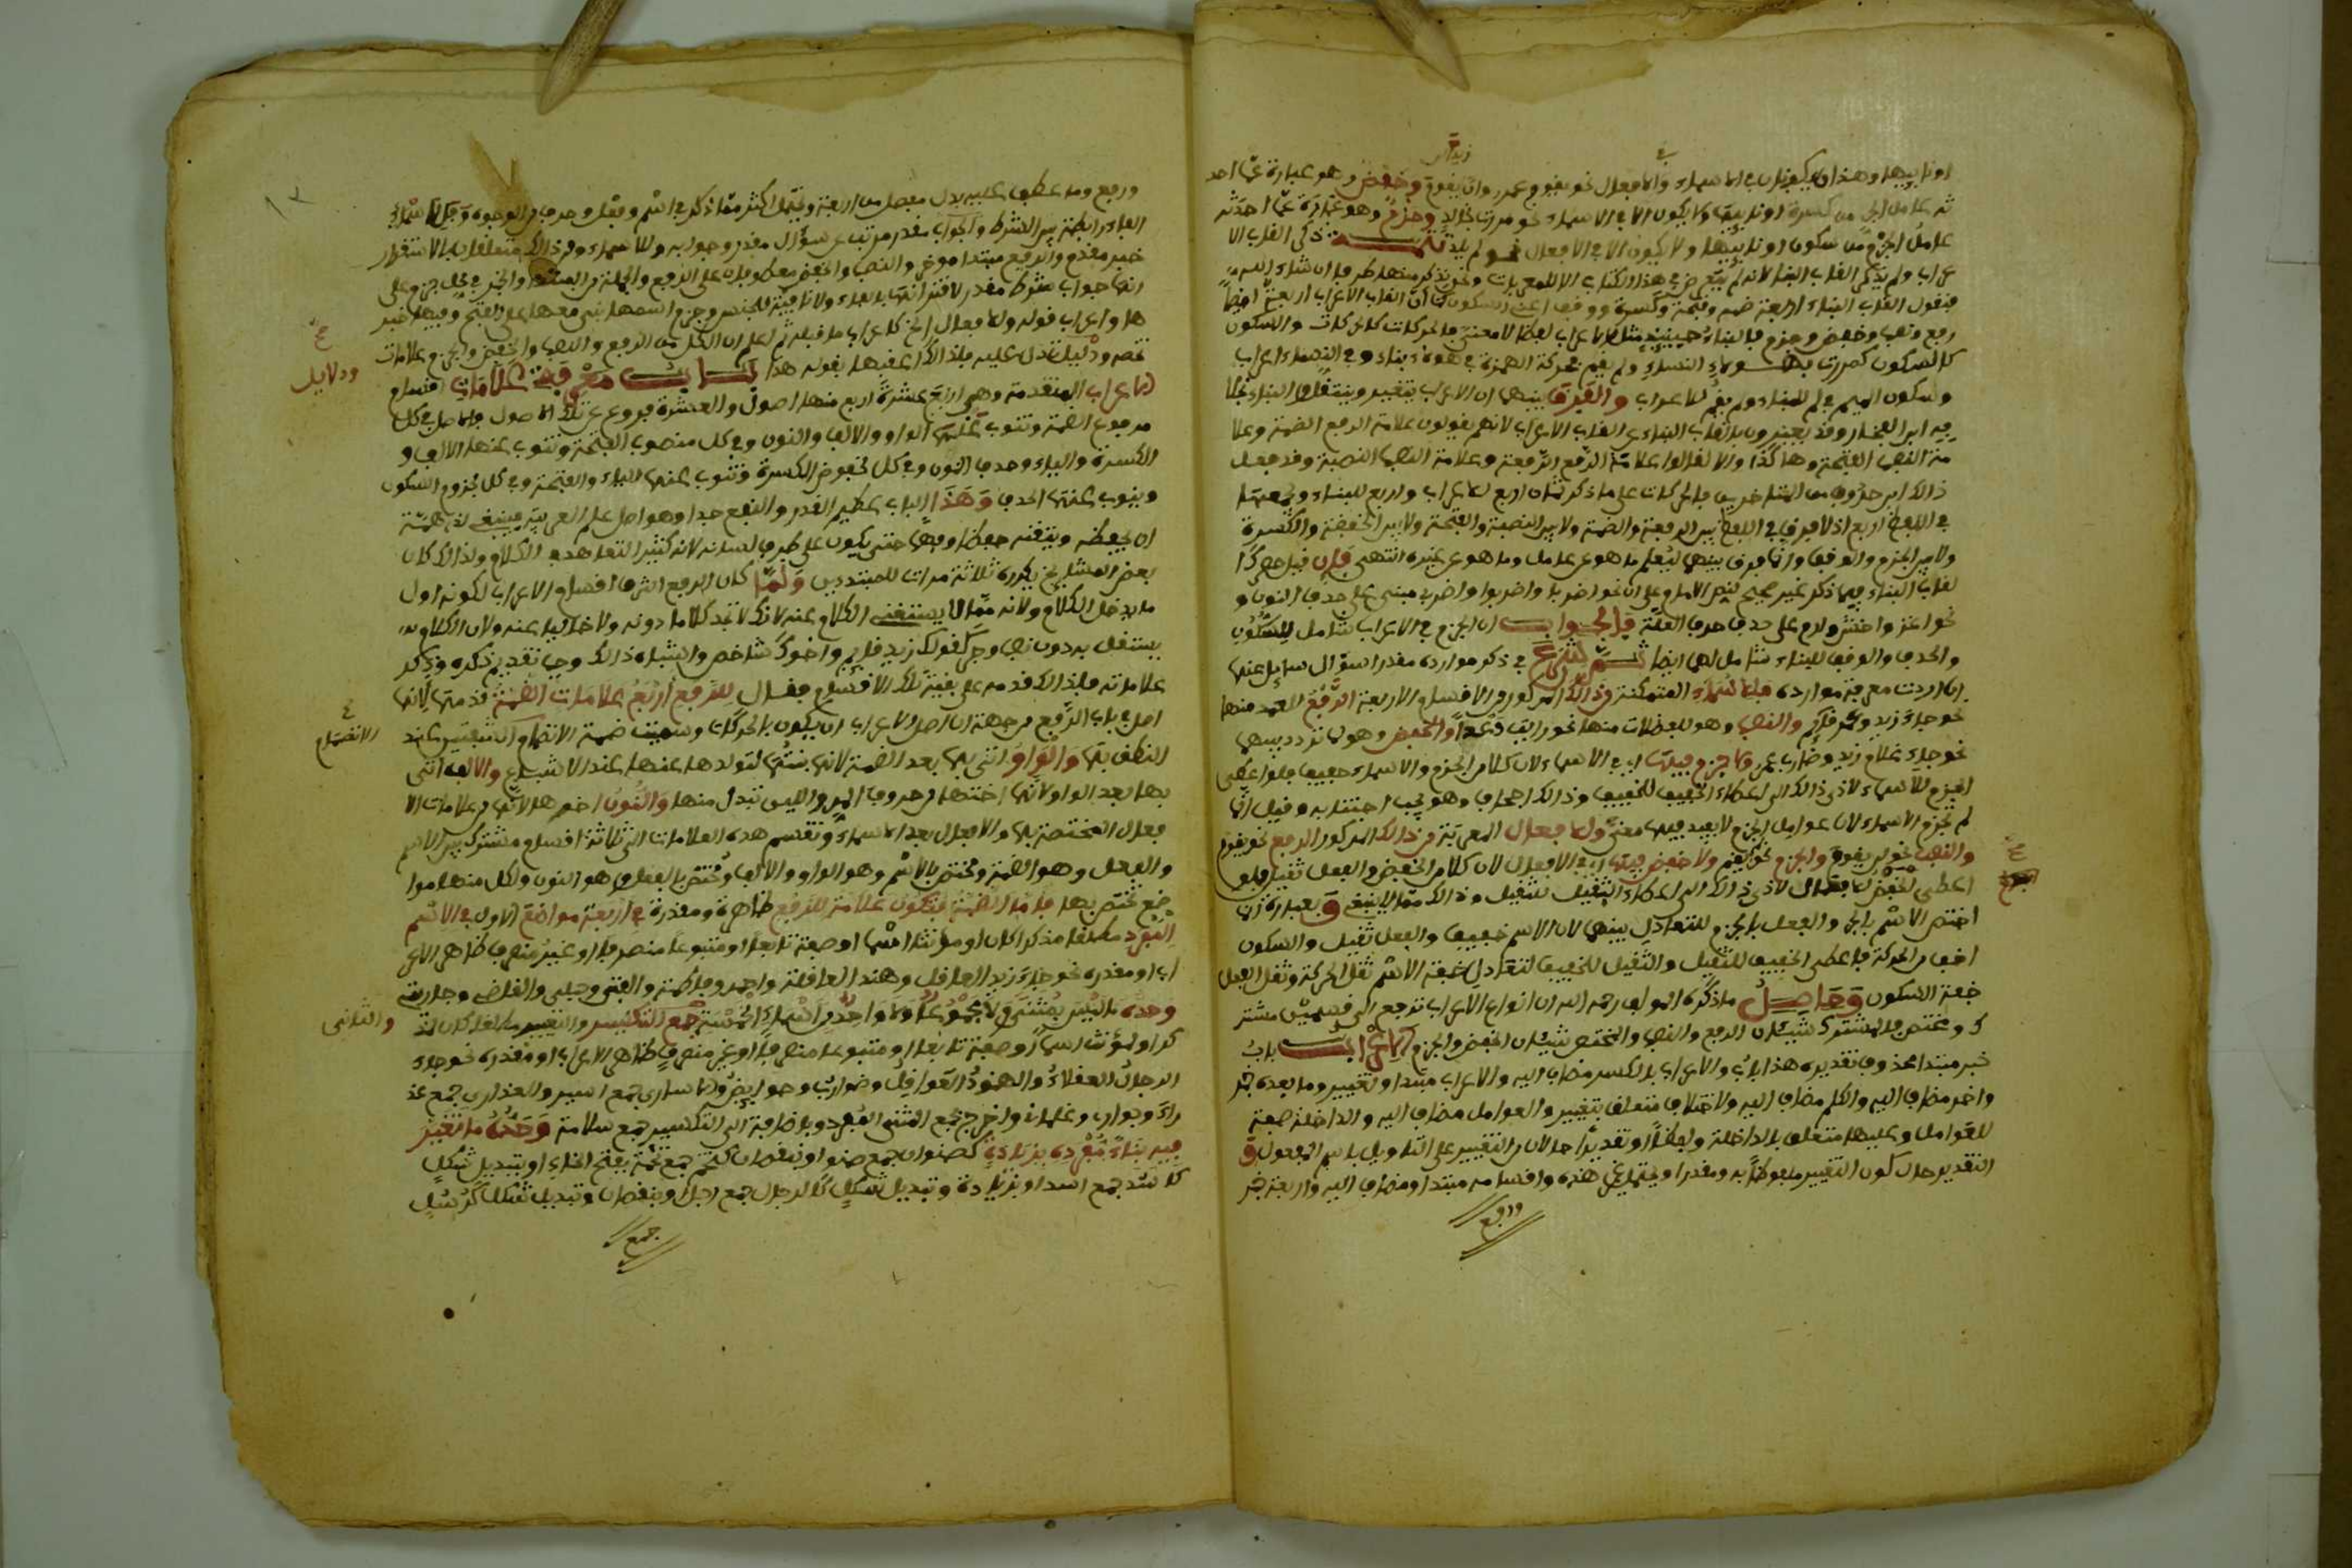 او نايبها وهذان يكونان في الاسماء والافعال نحو يقوم عمرو وان يقوم وخفض وهو عبارة عما احد
ثه عامل الجر من كسرة او نايبها ولا يكون الا في الاسماء نحو مررت بخالد وجزم وهو عبارة عما احدثه
عامل الجزم من سكون او نايبها ولا يكون الا في الافعال نحو لم يلد تتمة ذكر القاب الا
عراب ولم يذكر القاب البناء لانه لم يتعرض في هذا الكتاب الا للمعربات ونحن نذكر منها طرفا ان شاء الله
فنقول القاب البناء اربعة ضمة وفتحة وكسرة ووقف اعني السكون كما ان القاب الاعراب اربعة ايضا
رفع ونصب وخفض وجزم فالبناء حينئذ مثل الاعراب لفظا لا معنى فالحركات كالحركات والسكون
كالسكون كمررت بهؤلاء النساء ولم يقم فحركة الهمزة في هؤلاء بناء وفي النساء اعراب
وسكون الميم في لم للبناء ولم يقم للاعراب والفرق بينهما ان الاعراب يتغير وينتقل والبناء بخلا
فه ابن الفخار وقد يعبرون بالقاب البناء عن القاب الاعراب لانهم يقولون علامة الرفع الضمة وعلا
مة النصب الفتحة وهاكذا والا لقالوا علامة الرفع الرفعة وعلامة النصب النصبة وقد فعل
ذالك ابن حروف من المتاخرين فالحركات على ما ذكر ثمان اربع للاعراب واربع للبناء وجمعها
في اللفظ اربع اذ لا فرق في اللفظ بين الرفعة والضمة ولا بين النصبة والفتحة ولا بين الخفضة والكسرة
ولا بين الجزم والوقف وانما فرق بينهما ليعلم ما هو عن عامل وما هو عن غيره انتهى فان قيل حصركم ا
لقاب البناء فيما ذكر غير صحيح لنص الامام على ان نحو اضربا واضربوا واضربي مبني على حذف النون و
نحو اغز واخش وارم على حذف حرف العلة فالجواب ان الجزم في الاعراب شامل للسكون
والحذف والوقف للبناء شامل لهما ايضا ثم شرع في ذكر موارده مقدرا سؤال سايل عنها
ان اردت معرفة موارده فللاسماء المتمكنة من ذالك المذكور من الاقسام الاربعة الرفع للعمد منها
نحو جاء زيد وعمرو قايم والنصب وهو للفضلات منها نحو رايت عمرا والخفض وهو لما تردد بينهما
نحو جاء غلام زيد وضارب عمرو ولا جزم فيها اي في الاسماء لان كلا من الجزم والاسماء خفيف فلو اعطي
الجزم للاسماء لادى ذالك الى اعطاء الخفيف للخفيف وذالك اجحاف وهو يجب اجتنابه وقيل انما
لم تجزم الاسماء لان عوامل الجزم لا يفيد فيها معنى وللافعال المعربة من ذالك المذكور الرفع نحو يقوم
والنصب نحو لن يقوم والجزم نحو لم يقم ولا خفض فيها اي في الافعال لان كلا من الخفض والفعل ثقيل فلو
اعطي الخفض للافعال لادى ذالك الى اعطاء الثقيل للثقيل وذالك مما لا ينبغي وبعبارة انما
اختص الاسم بالجر والفعل بالجزم للتعادل بينهما لان الاسم خفيف والفعل ثقيل والسكون
اخف من الحركة فاعطي الخفيف للثقيل والثقيل للخفيف لتعادل خفة الاسم ثقل الحركة وثقل الفعل
خفة السكون وحاصل ما ذكره المؤلف رحمه الله ان انواع الاعراب ترجع الى قسمين مشتر
ك ومختص فالمشترك شيئان الرفع والنصب والمختص شيئان الخفض والجزم الاعراب باب
خبر مبتدا محذوف تقديره هذا باب والاعراب بالكسر مضاف اليه والاعراب مبتدا وتغيير وما بعده خبر
واخر مضاف اليه والكلم مضاف اليه ولاختلاف متعلق بتغيير والعوامل مضاف اليه والداخلة صفة
للعوامل وعليها متعلق بالداخلة ولفظا او تقديرا حالان من التغيير على التاويل باسم المفعول و
التقدير حال كون التغيير ملفوظا به ومقدرا واقسامه مبتدا ومضاف اليه واربعة خبر
ورفع
ورفع وما عطف عليه بدل مفصل من اربعة
الفاء رابطة بين الشرط والجواب مقدر مرتب عن سؤال مقدر وجوابه وللاسماء ومن ذالك متعلقان بالاستقرار
خبر مقدم والرفع مبتدا موخر والنصب والخفض معطوفان على الرفع والجملة من المبتدا والخبر في محل جزم على
انها جواب شرط مقدر لاقترانها بالفاء ولا نافية للجنس وجزم اسمها بني معها على الفتح وفيها خبر
ها واعراب قوله وللافعال الخ كاعراب ما قبله ثم اعلم ان لكل من الرفع والنصب والخفض والجزم علامات
تخصه ودليلا تدل عليه فلذالك اعقبها بقوله هذا باب معرفة علامات اقسام
الاعراب المتقدمة وهي اربع عشرة اربع منها اصول والعشرة فروع عن تلك الاصول فالاصل في كل
مرفوع الضمة وتنوب عنها الواو والالف والنون وفي كل منصوب الفتحة وتنوب عنها الالف و
الكسرة والياء وحذف النون وفي كل مخفوض الكسرة وتنوب عنها الياء والفتحة وفي كل مجزوم السكون
وينوب عنها الحذف وهذا الباب عظيم القدر والنفع جدا وهو اصل علم العربية فينبغي لذي همة
ان يحفظه ويتقنه حفظا وفهما حتى يكون على طرف لسانه لانه كثير التعاهد في الكلام ولذالك كان
بعض المشايخ يكرره ثلاثة مرات للمبتدئين ولما كان الرفع اشرف اقسام الاعراب لكونه اول
ما يدخل الكلام ولانه مما لا يستغني الكلام عنه لانك لا تجد كلاما دونه ولا خاليا عنه ولان الكلام
يستقل به دون نصب وجر كقولك زيد قايم واخوك شاخص واشباه ذالك وجب تقديم ذكره وذكر
علاماته فلذالك قدمه على بقية تلك الاقسام فقال للرفع اربع علامات الضمة قدمها لانها
اصل في باب الرفع من جهة ان اصل الاعراب ان يكون بالحركات وسميت ضمة لانضمام الشفتين عند
النطق بها والواو اتى بها بعد الضمة لانها بنتها لتولدها عنها عند الاشباع والالف اتى
بها بعد الواو لانها اختها من حروف المد واللين تبدل منها والنون اخرها لانها من علامات الا
فعال المختصة بها والافعال بعد الاسماء وتنقسم هذه العلامات الى ثلاثة اقسام مشترك بين الاسم
والفعل وهو الضمة ومختص بالاسم وهو الواو والالف ومختص بالفعل وهو النون ولكل منها موا
ضع تختص بها فاما الضمة فتكون علامة للرفع ظاهرة ومقدرة في اربعة مواضع الاول في الاسم
المفرد مطلقا مذكرا كان او مؤنثا اسما او صفة تابعا او متبوعا منصرفا او غير منصرف ظاهر الاعر
اب او مقدره نحو جاء زيد العاقل وهند العاقلة واحمر وفاطمة والفتى وحبلى والقاضي وجاريتي
وحده ما ليس بمثنى ولا مجموعا ولا واحدا من اسماء الخمسة جمع التكسير والتغيير مطلقا كان مذ
كرا او مؤنث اسما او صفة تابعا او متبوعا منصرفا او غير منصرف ظاهر الاعراب او مقدره نحو جاء
الرجال العقلاء والهنود العواقل وضوارب وحوايض والاسارى جمع اسير والعذارى جمع عذ
راء وجوارب وغلماني واخرج بجمع المثنى المفرد وباضافة الى التكسير جمع سلامة وحده ما تغير
فيه بناء مفرده بزيادة كصنوان جمع صنو او بنقصان كتخم جمع تخمة بفتح الخاء او بتبديل شكل
كاسد جمع اسد او بزيادة وتبديل شكل كالرجال جمع رجل وبنقصان وتبديل شكل كرسل
جمع
ودلايل
الانضمام
والثاني